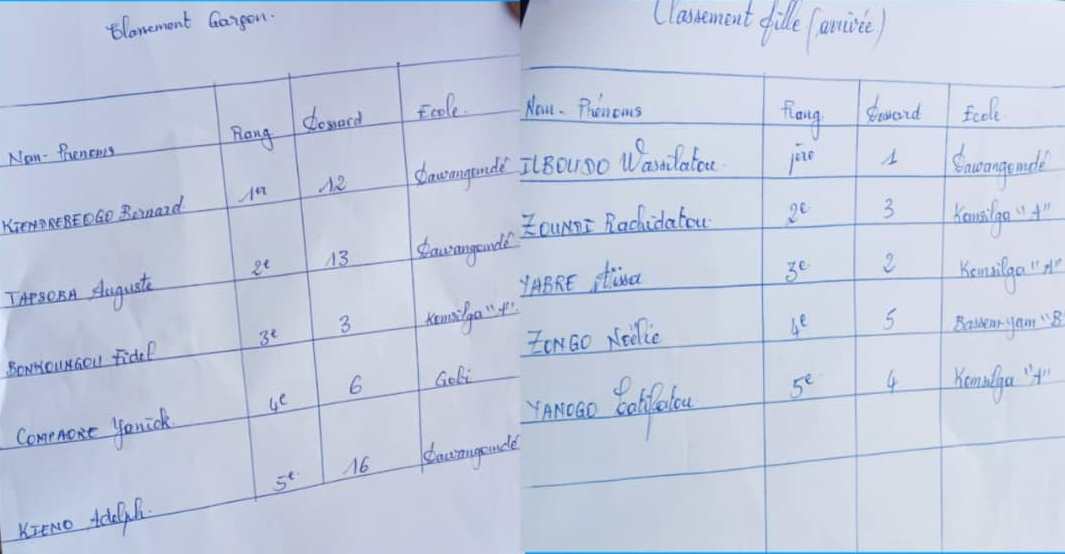 Classement Garçon.
Nom - Prénoms Rang Dossard Ecole.
KIENDREBEOGO Bernard 1er 12 Sawangomdé
TAPSOBA Auguste 2e 13 Sawangomdé
BONKOUNGOU Fidel 3e 3 Komsilga "A"
COMPAORE Yanick 4e 6 Gobi
KIENO Adolph. 5e 16 Sawangomdé
Classement fille (arrivée)
Nom - Prénoms Rang Dossard Ecole
ILBOUDO Wasnilatou 1ère 1 Sawangomdé
ZOUNDI Rachidatou 2e 3 Komsilga "A"
YABRE Aïssa 3e 2 Komsilga "A"
ZONGO Noëlie 4e 5 Bassem-yam "B
YANOGO Latifatou 5e 4 Komsilga "A"